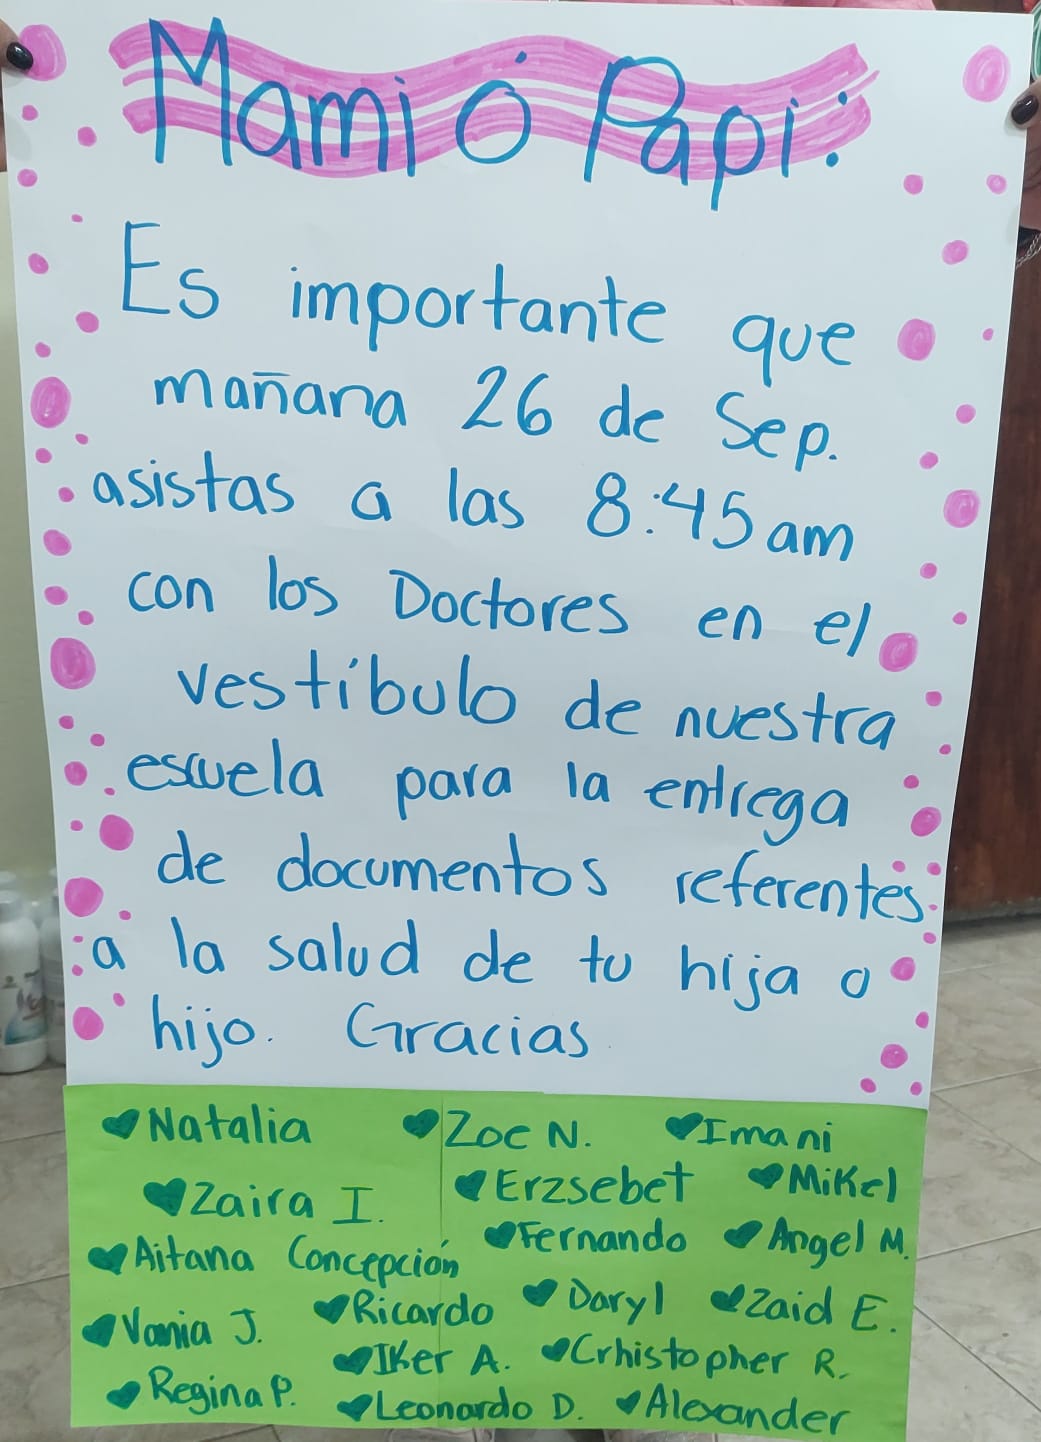 Mami ó Papi:
Es importante que
mañana 26 de Sep.
asistas a las 8:45am
con los Doctores en el
vestíbulo de nuestra
escuela para la entrega
de documentos referentes
a la salud de tu hija o
hijo. Gracias
Natalia Zoe N. Imani
Zaira I. Erzsebet Mikel
Aitana Concepción Fernando Angel M.
Vania J. Ricardo Daryl Zaid E.
Iker A. Crhistopher R.
Regina P. Leonardo D. Alexander